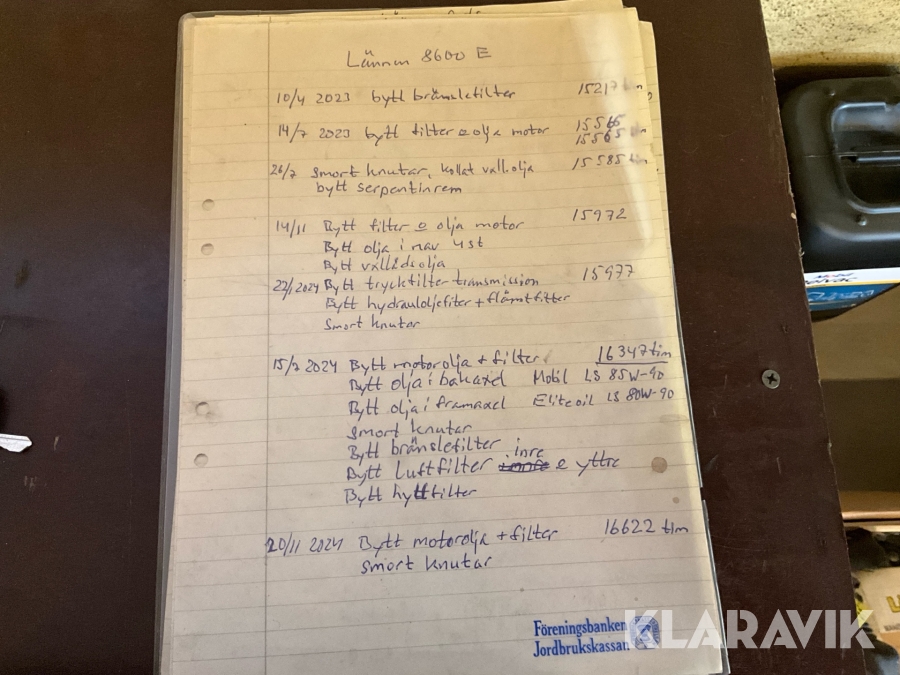 Lännen 8600 E
10/4 2023 bytt bränslefilter 15217 tim
14/7 2023 bytt filter o olja motor 15565
15565 tim
26/7 Smort knutar, kollat vxll.olja 15585 tim
bytt serpentinrem
14/11 Bytt filter o olja motor 15972
Bytt olja i nav 4st
Bytt växllådsolja
22/1 2024 Bytt tryckfilter transmission 15977
Bytt hydrauloljefilter + flämtfilter
Smort knutar
15/7 2024 Bytt motorolja + filter 16347 tim
Bytt olja i bakaxel Mobil LS 85W-90
Bytt olja i framaxel Elite oil LS 80W-90
Smort knutar
Bytt bränslefilter
Bytt Luftfilter inre o yttre
Bytt hyttfilter
20/11 2024 Bytt motorolja + filter 16622 tim
Smort knutar
Föreningsbanken
Jordbrukskassan
KLARAVIK